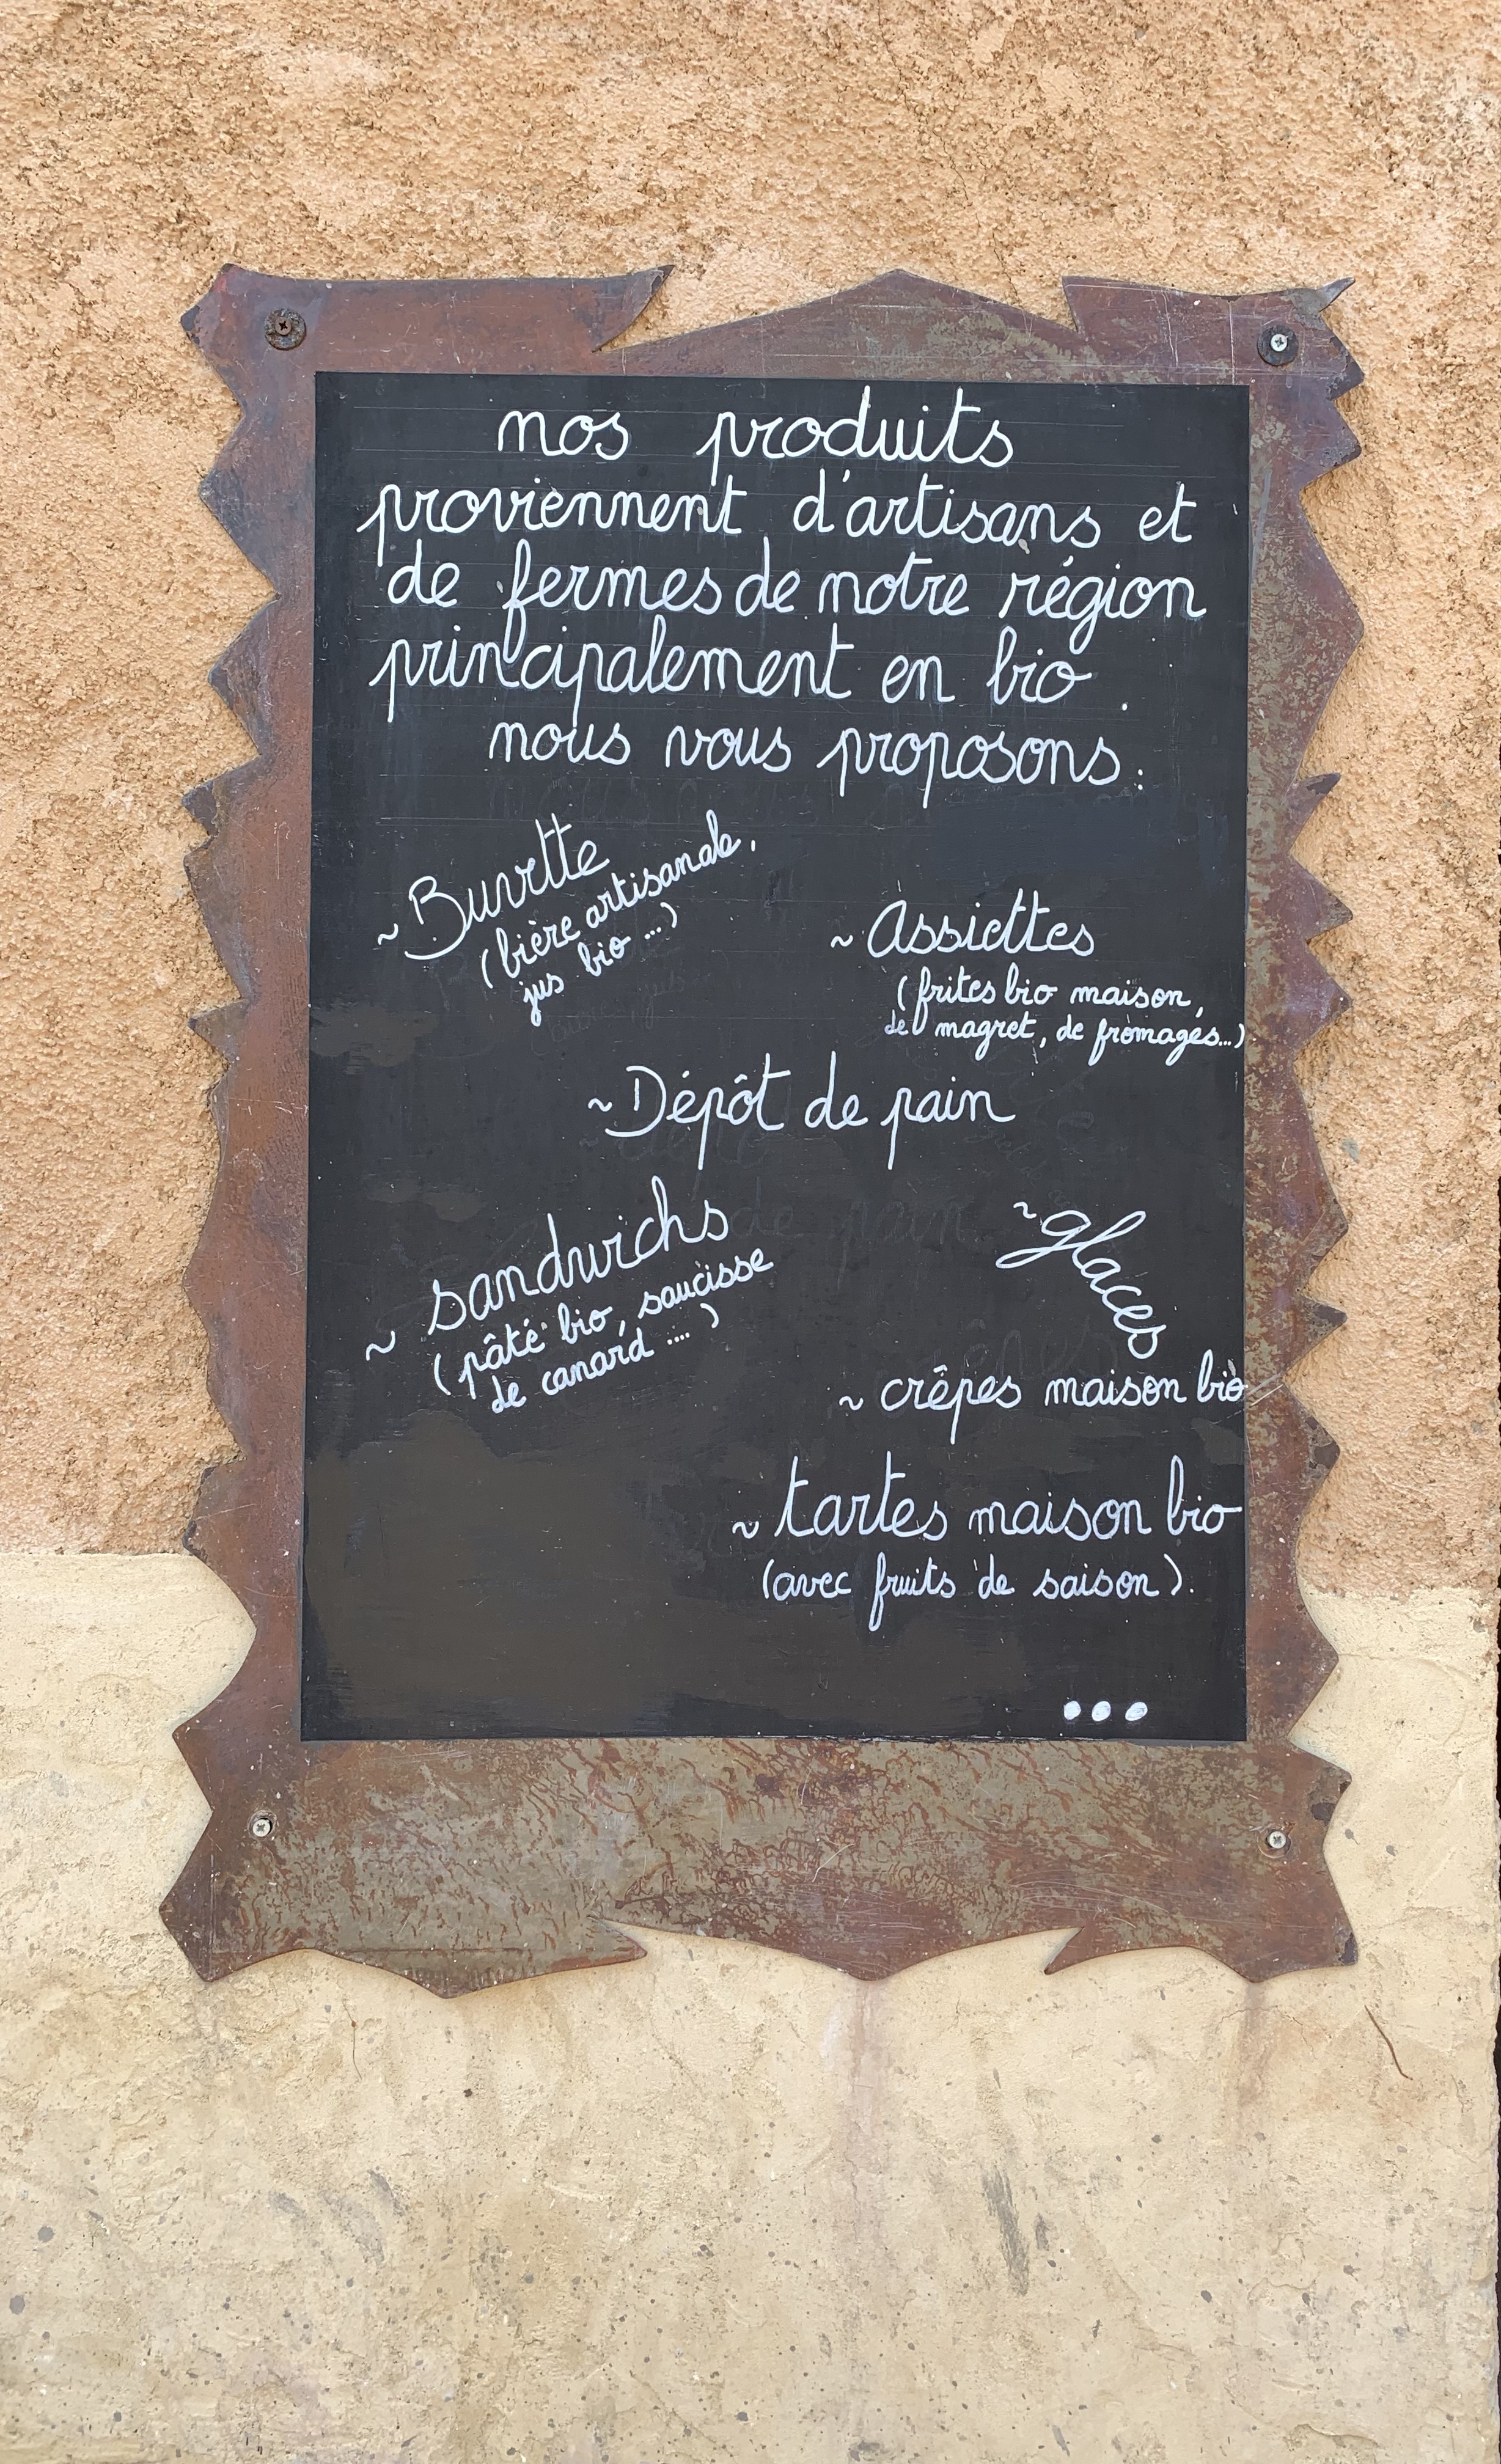 nos produits
proviennent d'artisans et
de fermes de notre région
principalement en bio.
nous vous proposons:
~ Buvette
(bière artisanale,
jus bio ...)
~ Assiettes
(frites bio maison,
de magret, de fromages...)
~ Dépôt de pain
~ sandwichs
(pâté bio, saucisse
de canard ....)
~ glaces
~ crêpes maison bio
~ tartes maison bio
(avec fruits de saison).
...